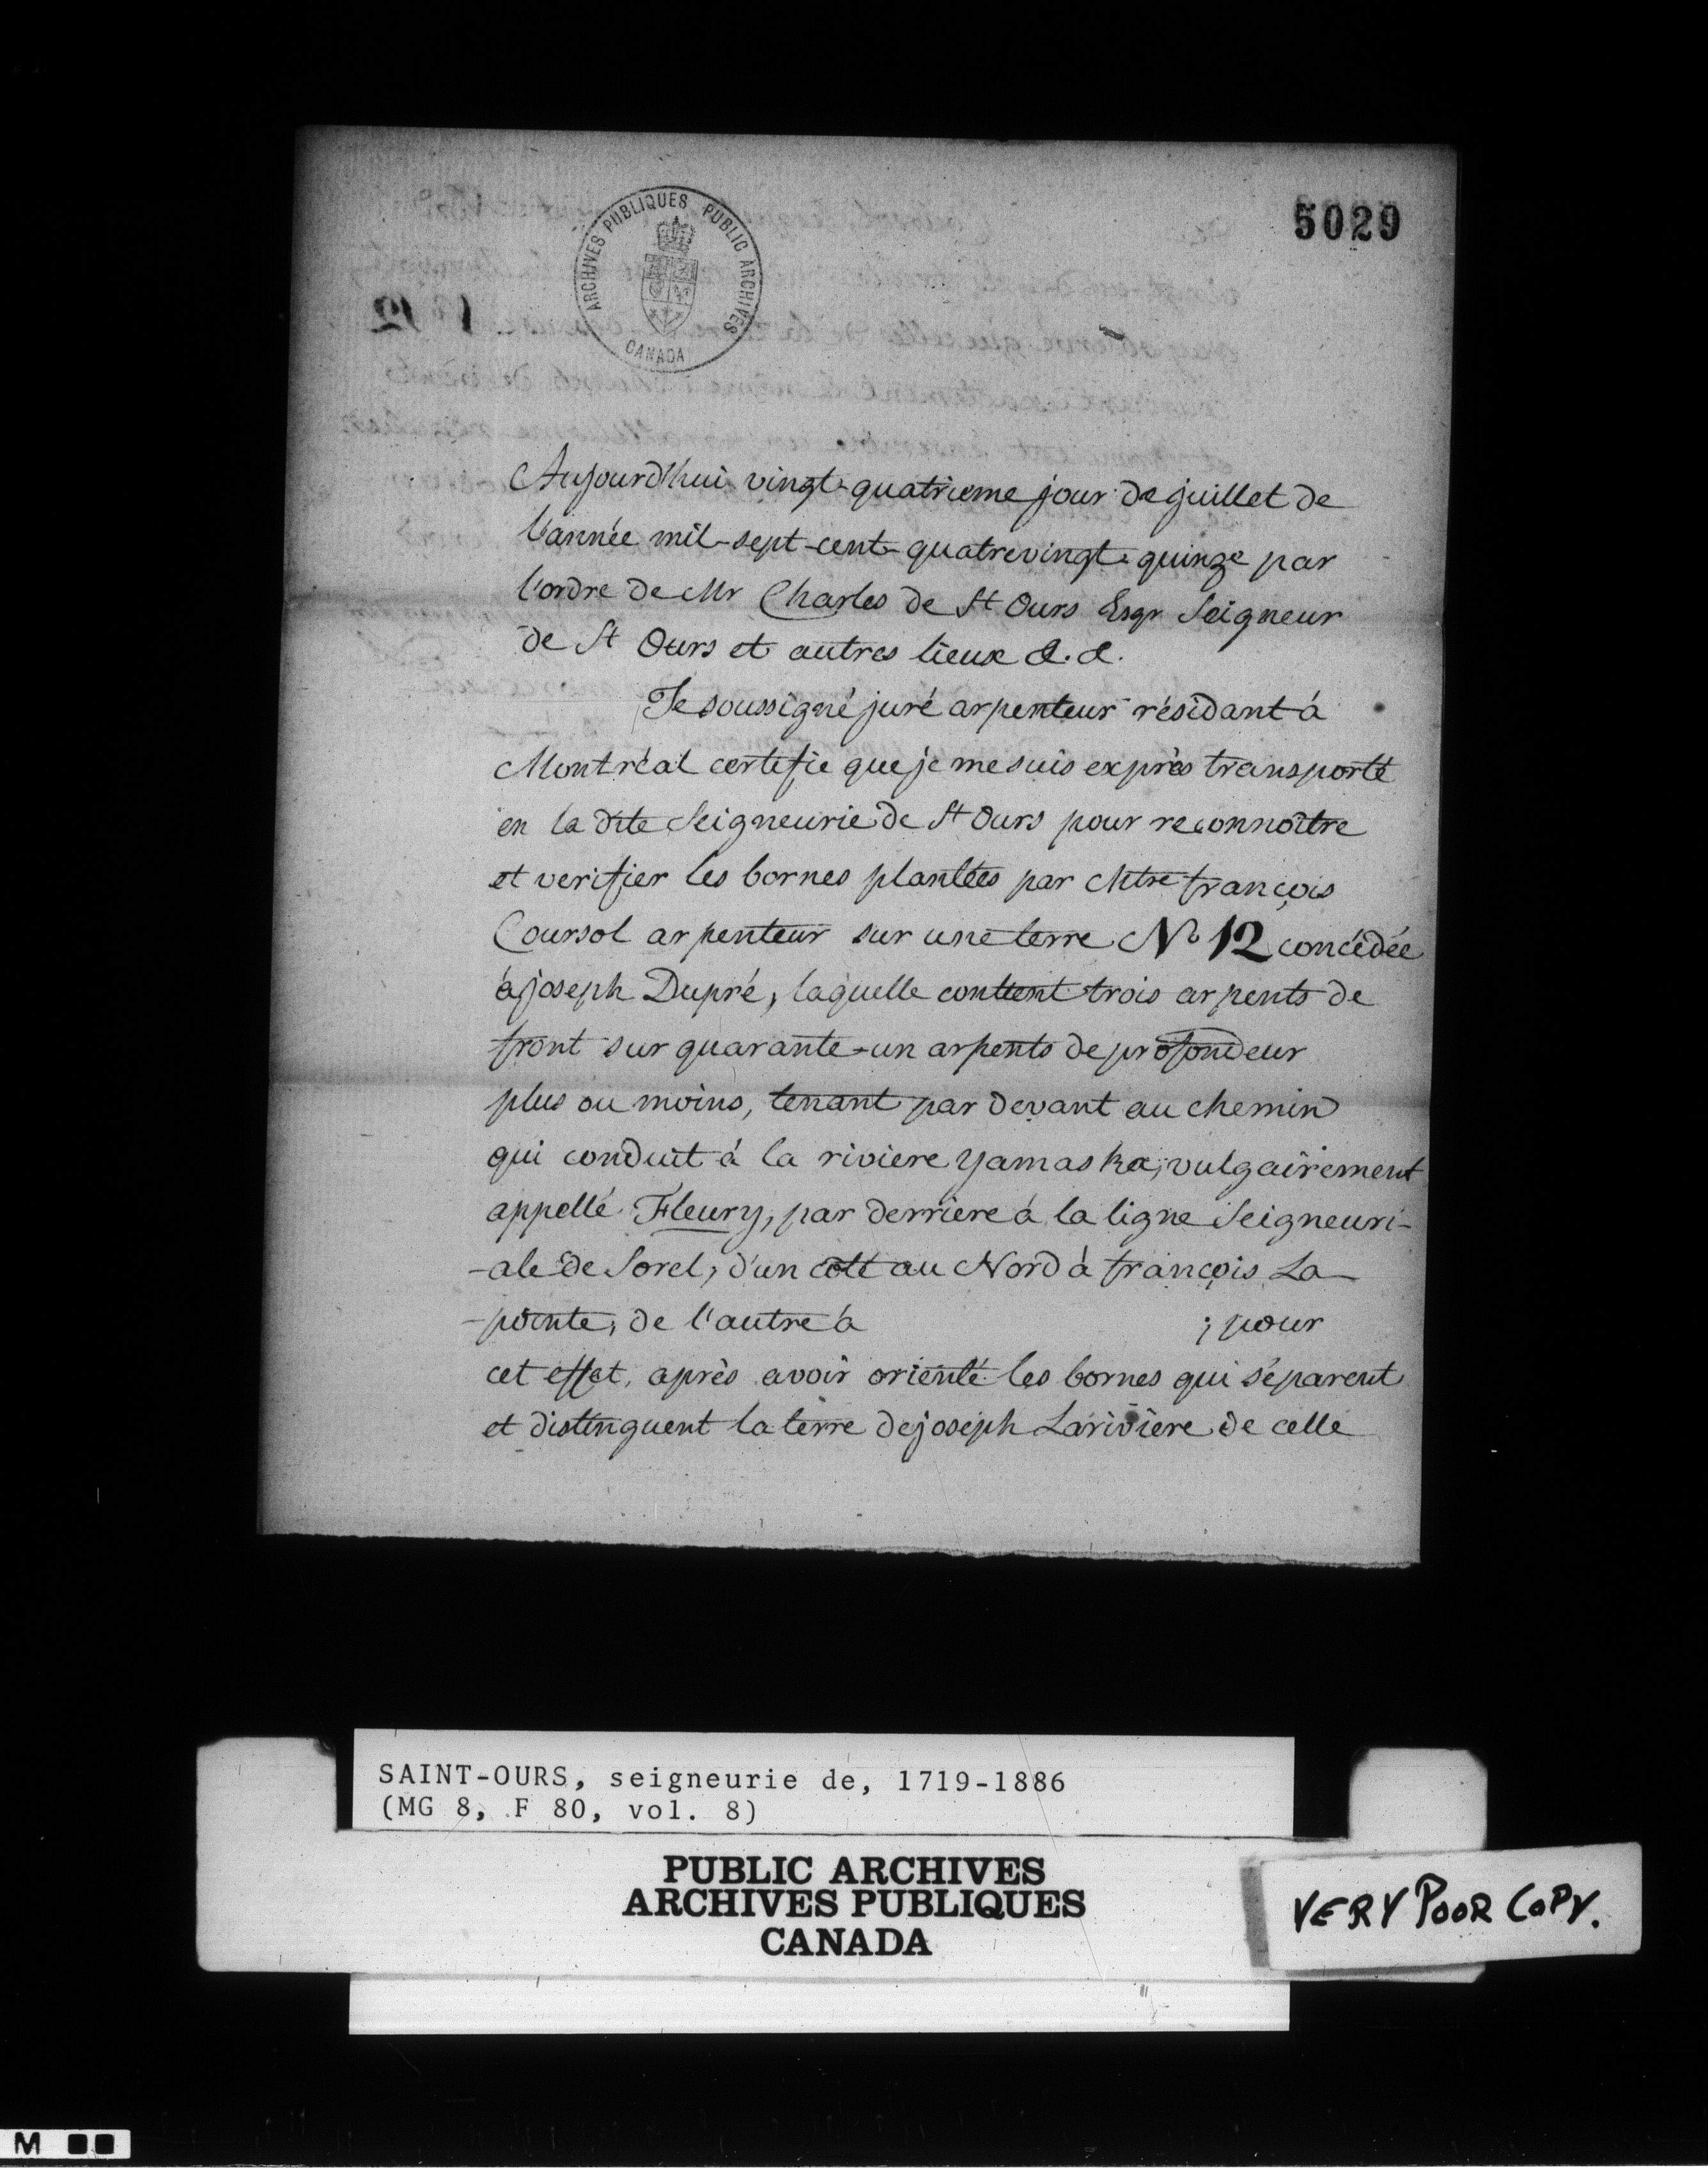 ARCHIVES PUBLIQUES PUBLIC ARCHIVES
CANADA
5029
Aujourd'hui vingt-quatrieme jour de juillet de
l'année mil-sept-cent-quatrevingt-quinze par
l'ordre de Mr Charles de St Ours Esqr Seigneur
de St Ours et autres lieux &.&.
Je soussigné juré arpenteur résidant à
Montréal certifie que je me suis exprès transporté
en la dite Seigneurie de St Ours pour reconnoître
et verifier les bornes plantées par Mtre françois
Coursol arpenteur sur une terre No 12 concédée
à joseph Dupré, laquelle contient trois arpents de
front sur quarante-un arpents de profondeur
plus ou moins, tenant par devant au chemin
qui conduit à la riviere yamaska, vulgairement
appellé Fleury, par derriere à la ligne Seigneuri-
-ale de Sorel, d'un coté au Nord à françois La-
-pointe, de l'autre à ; pour
cet effet, après avoir orienté les bornes qui séparent
et distinguent la terre de joseph Lariviere de celle
SAINT-OURS, seigneurie de, 1719-1886
(MG 8, F 80, vol. 8)
PUBLIC ARCHIVES
ARCHIVES PUBLIQUES
CANADA
VERY POOR COPY.
M